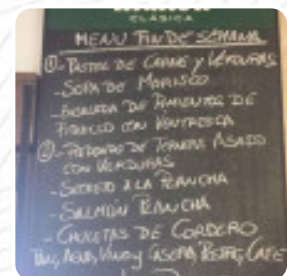 CLÁSICA
MENU FIN DE SEMANA
①- PASTEL DE CARNE Y VERDURAS
- SOPA DE MARISCO
- ENSALADA DE PIMIENTOS DE
PIQUILLO CON VENTRESCA
②- REDONDO DE TERNERA ASADO
CON VERDURAS
- SECRETO A LA PLANCHA
- SALMÓN PLANCHA
- CHULETAS DE CORDERO
PAN, AGUA, VINO Y CASERA, POSTRE, CAFE